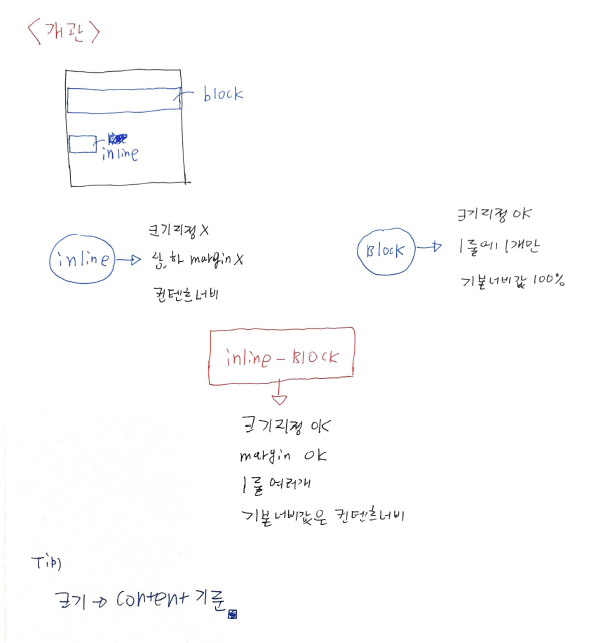 <개관>
block
inline
inline → 크기지정 X
상,하 margin X
컨텐츠너비
Block → 크기지정 OK
1줄에 1개만
기본너비값 100%
inline - Block
크기지정 OK
margin OK
1줄 여러개
기본너비값은 컨텐츠너비
Tip)
크기 → content 기준